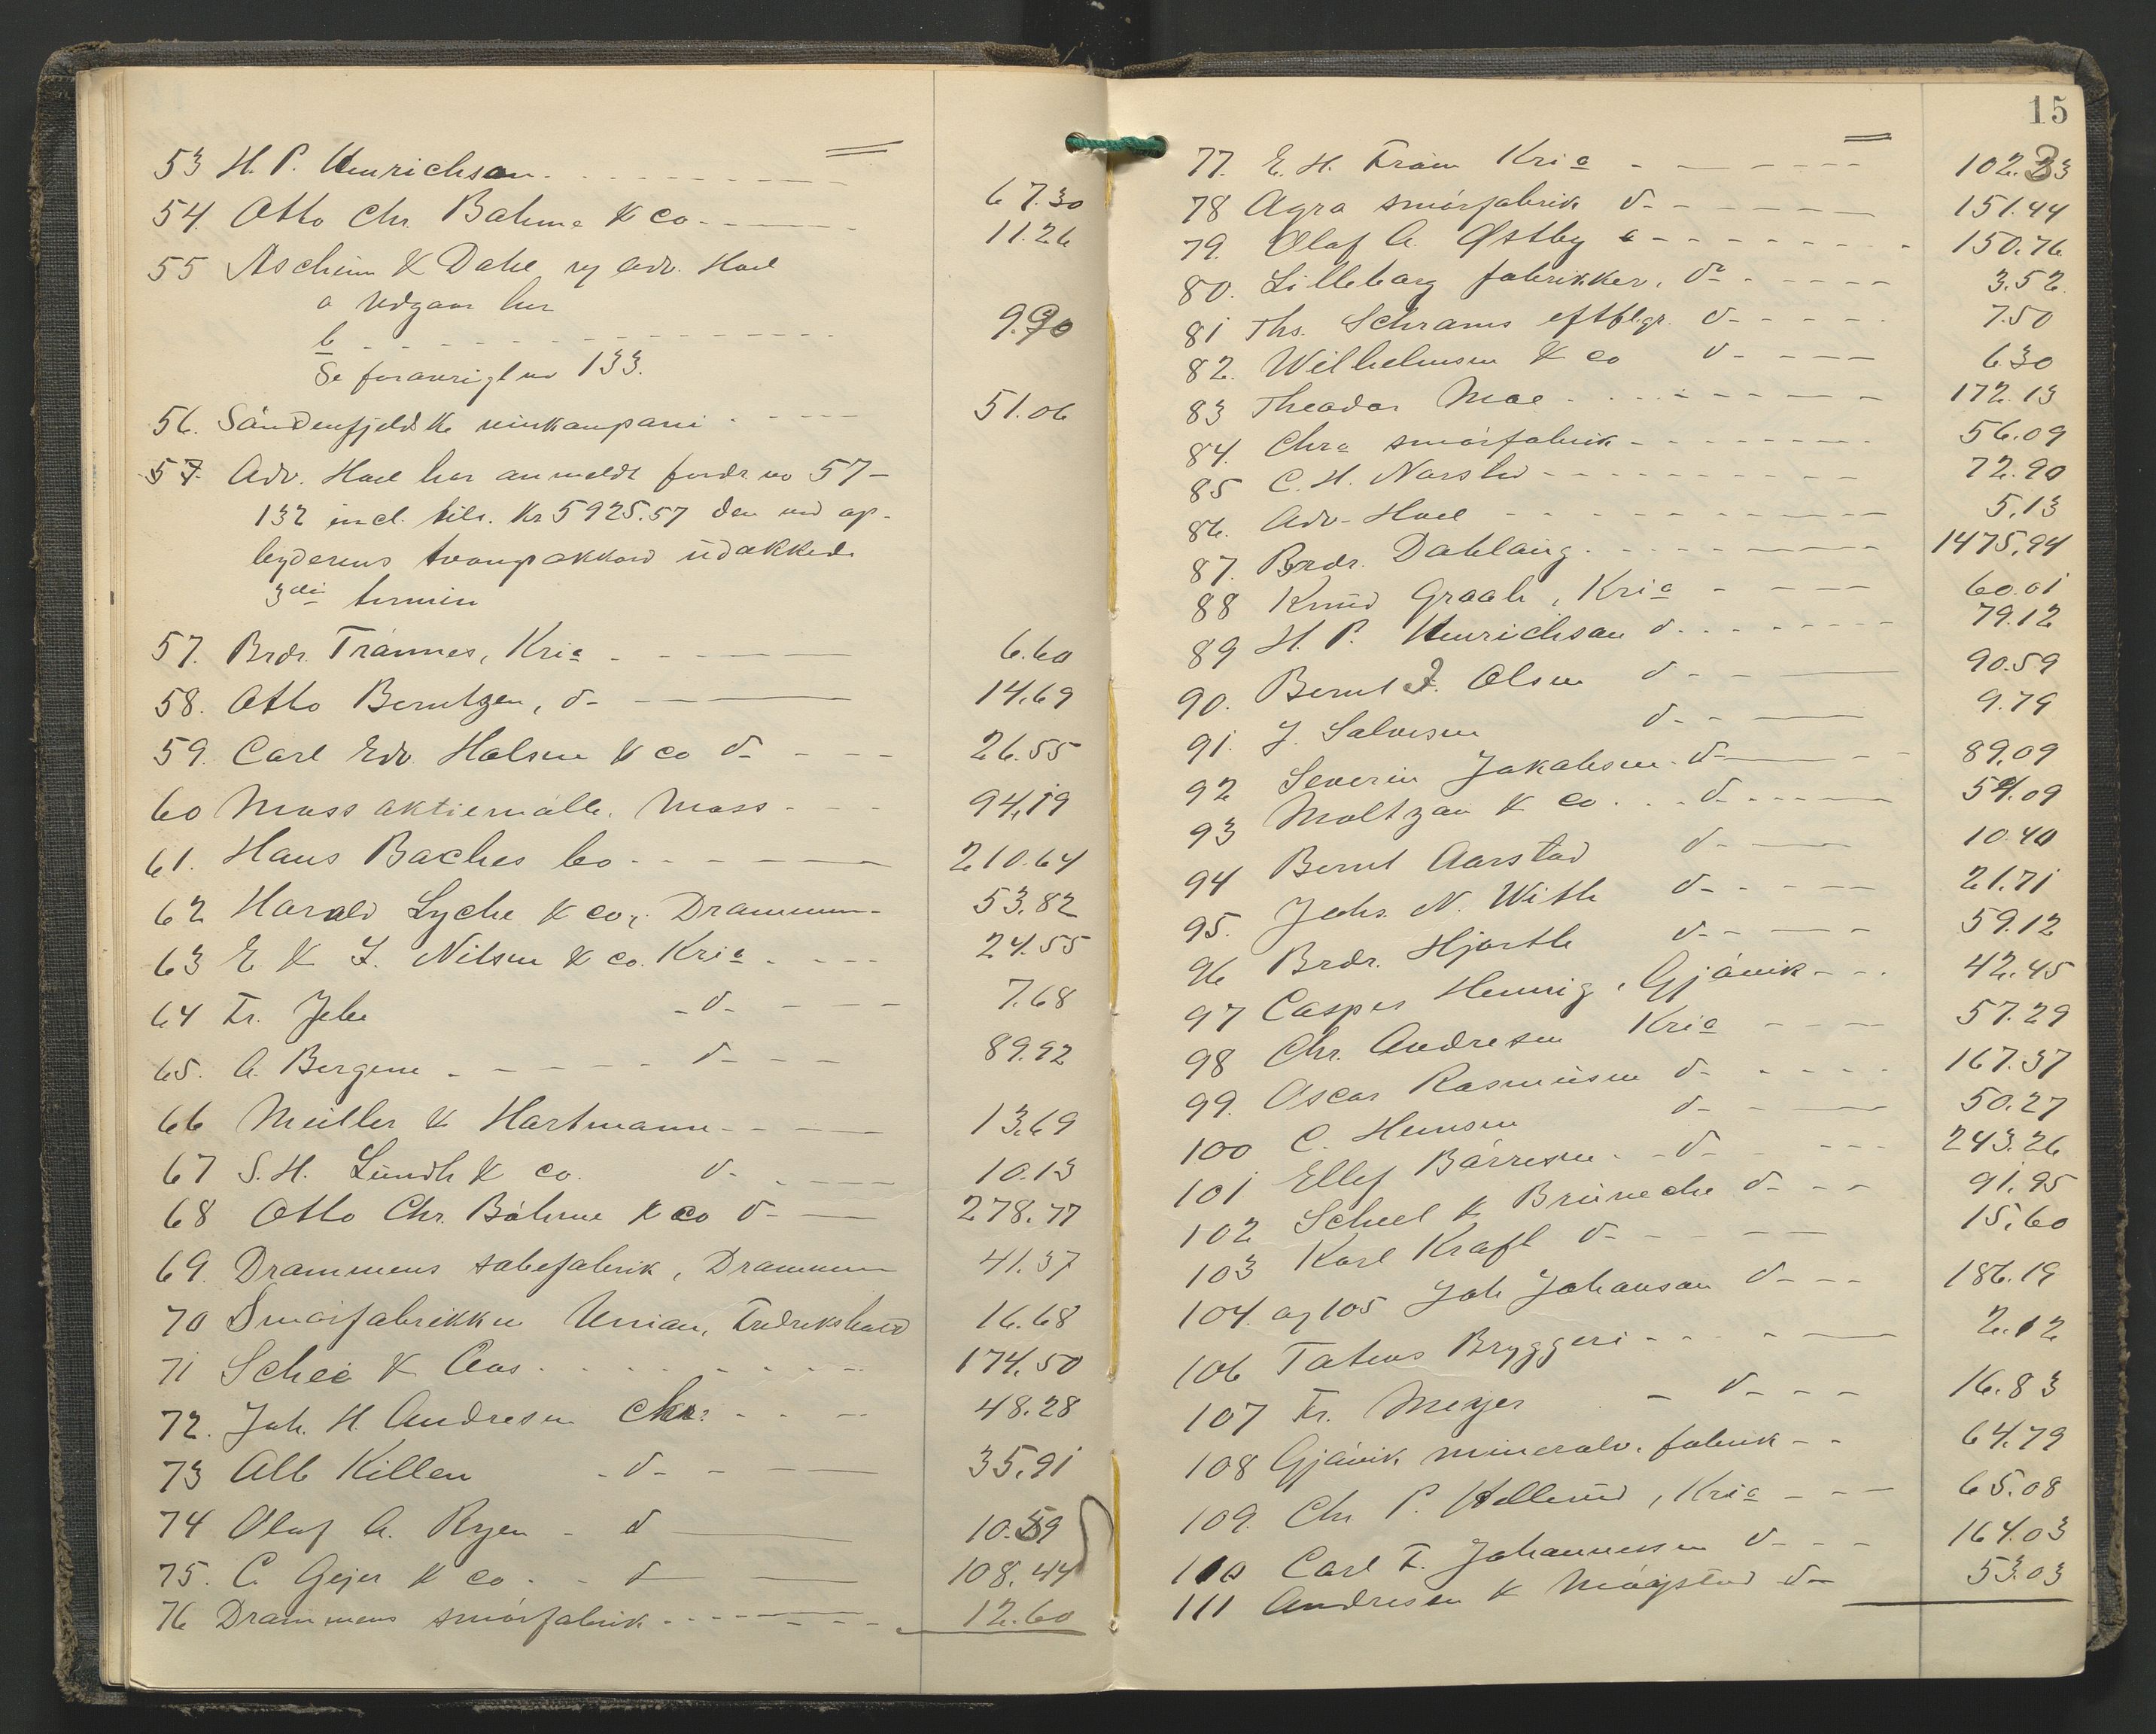 53 H. P. Henrichsen 67.30
54. Otto Chr. Bøhme & Co 11.26
55 Ascheim & Dahl v/ adv. Hoel
a Udgaar her
b 9.90
Se forøvrigt no 133.
56. Søndenfjeldske vinkompani 51.06
57 Adv. Hoel har anmeldt fordr. no 57-
132 incl. tils. Kr 5925.57 den ved op-
byderens tvangsakkord udækkede
3die termin
57. Brdr. Trønnes, Kria 6.60
58. Otto Berntzen, d- 14.69
59. Carl Edv. Halsen & co d- 26.55
60 Moss aktiemølle, Moss 94.19
61. Hans Baches bo 210.64
62 Harald Lyche & co, Drammen 53.82
63 E & F. Nilsen & co. Kria 24.55
64 Fr. Jebe -d- 7.68
65. A. Bergene d- 89.92
66 Müller & Hartmann 13.69
67 S. H. Lundh & co. d- 10.13
68 Otto Chr. Bøhme & co d- 278.77
69. Drammens sæbefabrik, Drammen 41.37
70 Smørfabrikken Union, Fredrikshald 16.68
71 Schee & Aas 174.50
72. Joh. H. Andresen Chra 48.28
73 Alb Killen -d- 35.91
74 Olaf A. Ryen - d 10.59
75. C. Gejer & co - d 108.44
76 Drammens smørfabrik 12.60
15
77. E. H. Fram Kria 102.33
78 Agra smørfabrik d- 151.44
79. Olaf A. Østby 150.76
80. Lilleborg fabrikker, do 3.52
81 Ths. Schrams eftflgr. d- 7.50
82. Wilhelmsen & co d- 6.30
83 Theodor Moe 172.13
84. Chra smørfabrik 56.09
85 C. H. Norsted 72.90
86. Adv. Hoel 5.13
87. Brdr. Dahlaug 1475.94
88 Knud Graah, Kria 60.01
89 H. P. Henrichsen d. 79.12
90. Bernt J. Olsen d- 90.59
91. J. Salvesen d- 9.79
92 Severin Jakobsen d- 89.09
93 Moltzau & Co. d- 54.09
94 Bernt Aarstad d- 10.40
95. Johs. N. With d- 21.71
96 Brdr. Hjorth d- 59.12
97 Casper Hennig, Gjøvik 42.45
98 Chr. Andresen Kria 57.29
99. Oscar Rasmussen d- 167.37
100 C. Hemsen d- 50.27
101 Ellef Børresen d- 243.26
102 Scheel & Brüneche d- 91.95
103 Karl Kraft d- 15.60
104. og 105 Joh Johanson d- 186.19
106 Totens Bryggeri 2.12
107 Fr. Meyer - d- 16.83
108 Gjøvik mineralv. fabrik 64.79
109. Chr P. Hellerud, Kria 65.08
110 Carl F. Johannesen d- 164.03
111 Andresen & Møgstad d- 53.03